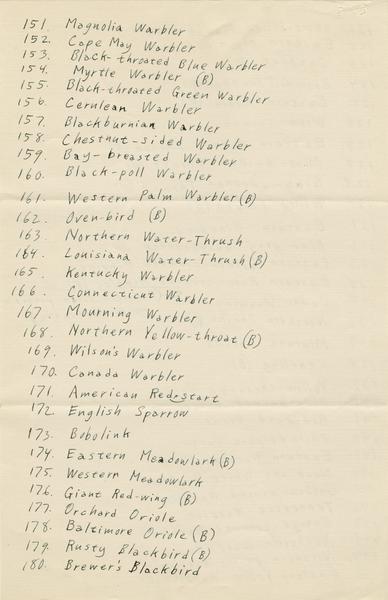 151. Magnolia Warbler
152. Cape May Warbler
153. Black-throated Blue Warbler
154. Myrtle Warbler (B)
155. Black-throated Green Warbler
156. Cerulean Warbler
157. Blackburnian Warbler
158. Chestnut-sided Warbler
159. Bay-breasted Warbler
160. Black-poll Warbler
161. Western Palm Warbler (B)
162. Oven-bird (B)
163. Northern Water-Thrush
164. Louisiana Water-Thrush (B)
165. Kentucky Warbler
166. Connecticut Warbler
167. Mourning Warbler
168. Northern Yellow-throat (B)
169. Wilson's Warbler
170. Canada Warbler
171. American Redstart
172. English Sparrow
173. Bobolink
174. Eastern Meadowlark (B)
175. Western Meadowlark
176. Giant Red-wing (B)
177. Orchard Oriole
178. Baltimore Oriole (B)
179. Rusty Blackbird (B)
180. Brewer's Blackbird